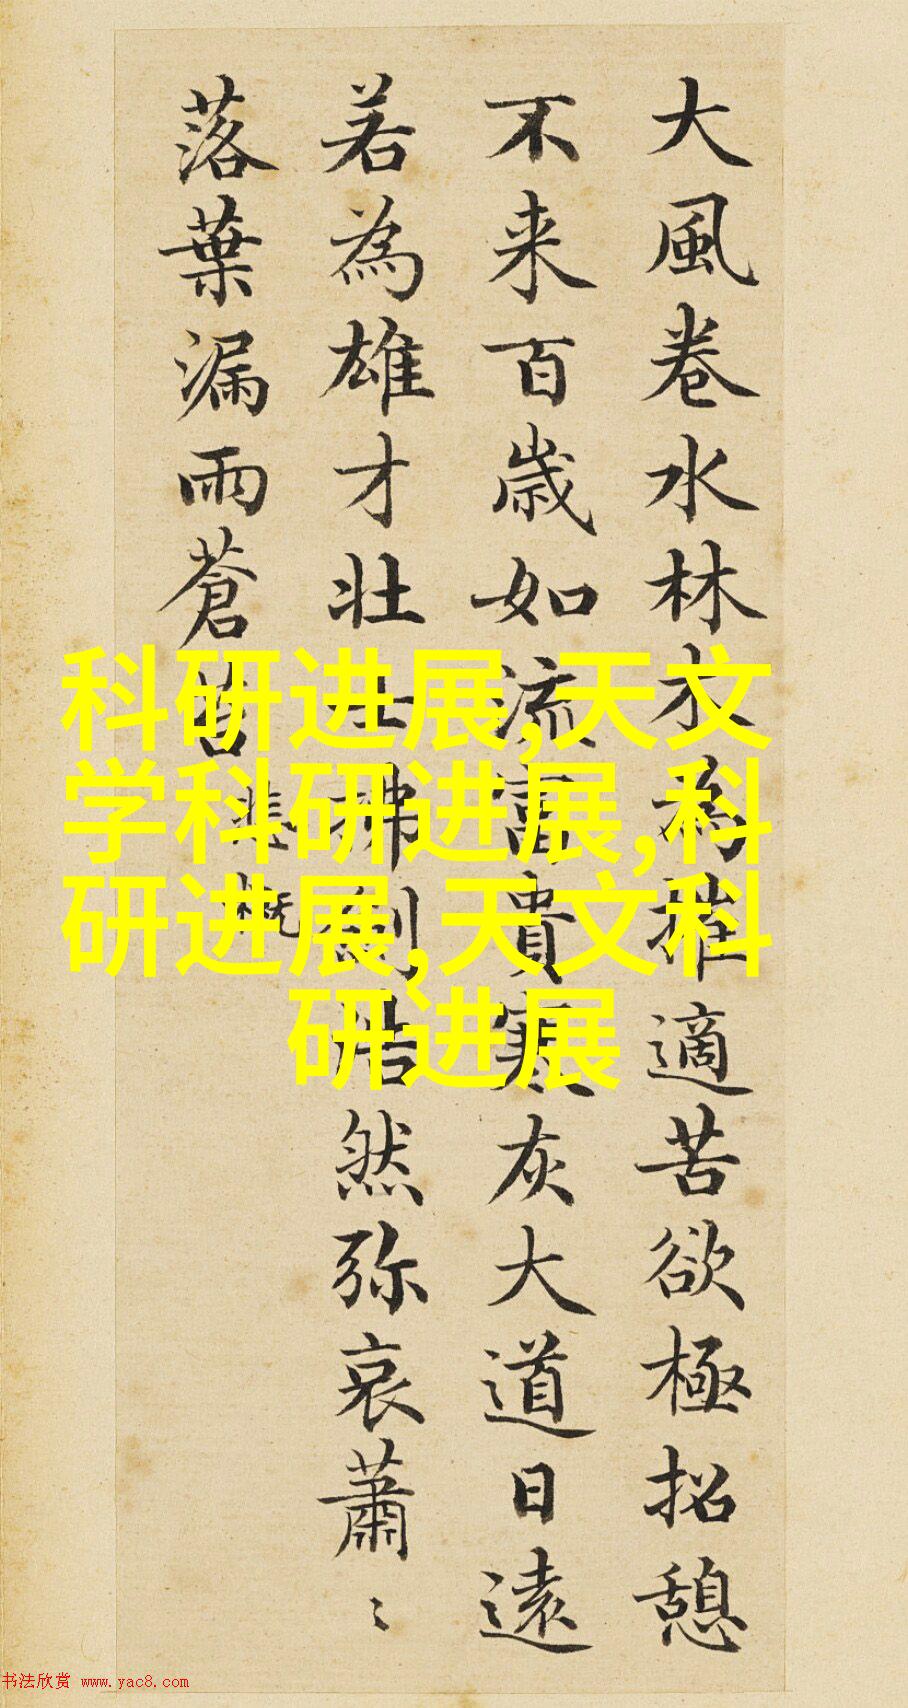 大風卷水林木為摧適苦欲極招憩
不来百歲如流富貴寒灰大道日遠
若為雄才壯士拂劍浩然弥哀蕭〻
落葉漏雨蒼苔
悲慨
科研进展,天文
学科研进展,科
研进展,天文科
研进展
书法欣赏 www.yac8.com